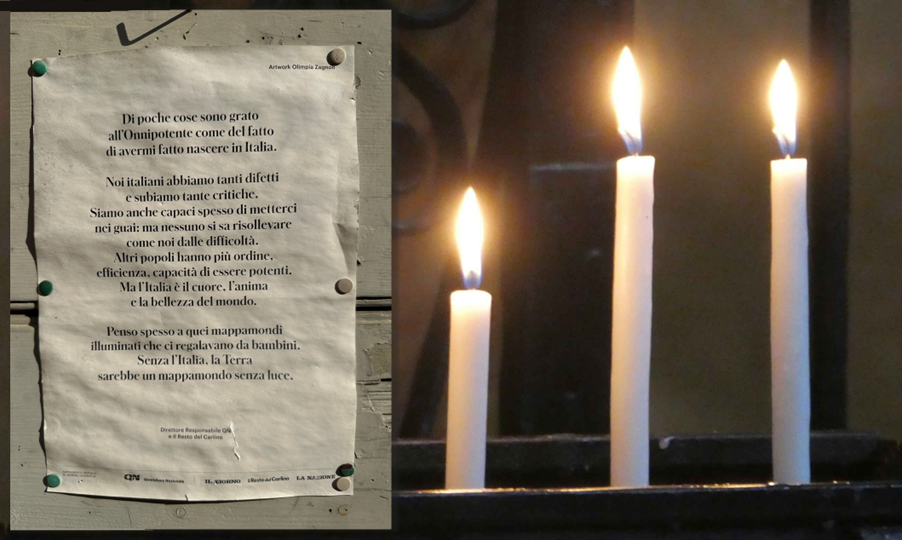 Artwork Olimpia Zagnoli
Di poche cose sono grato
all'Onnipotente come del fatto
di avermi fatto nascere in Italia.
Noi italiani abbiamo tanti difetti
e subiamo tante critiche.
Siamo anche capaci spesso di metterci
nei guai: ma nessuno si sa risollevare
come noi dalle difficoltà.
Altri popoli hanno più ordine,
efficienza, capacità di essere potenti.
Ma l'Italia è il cuore, l'anima
e la bellezza del mondo.
Penso spesso a quei mappamondi
illuminati che ci regalavano da bambini.
Senza l'Italia, la Terra
sarebbe un mappamondo senza luce.
Direttore Responsabile QN
e il Resto del Carlino
QN Quotidiano Nazionale IL GIORNO il Resto del Carlino LA NAZIONE